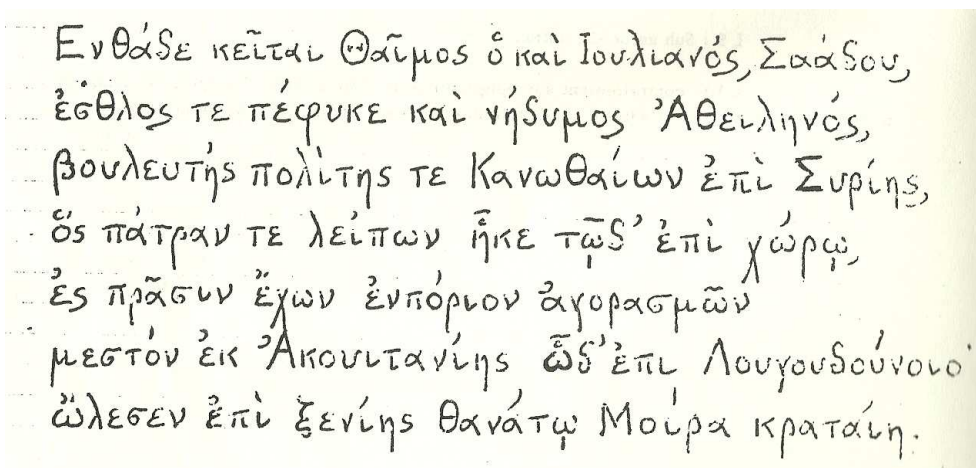 Ενθάδε κεῖται Θαῖμος ὅ καὶ Ιουλιανός, Σαάδου,
ἐσθλος τε πέφυκε καὶ νήδυμος Ἀθειληνός,
βουλευτής πολίτης τε Κανωθαίων ἐπὶ Συρίης,
ὅς πάτραν τε λείπων ἧκε τῷδ' ἐπὶ χώρῳ,
ἐς πρᾶσιν ἔχων ἐνπόριον ἀγορασμῶν
μεστόν ἐκ Ἀκουιτανίης ὧδ' ἐπι Λουγουδούνοιο·
ὤλεσεν ἐπὶ ξενίης θανάτῳ Μοίρα κραταίη.